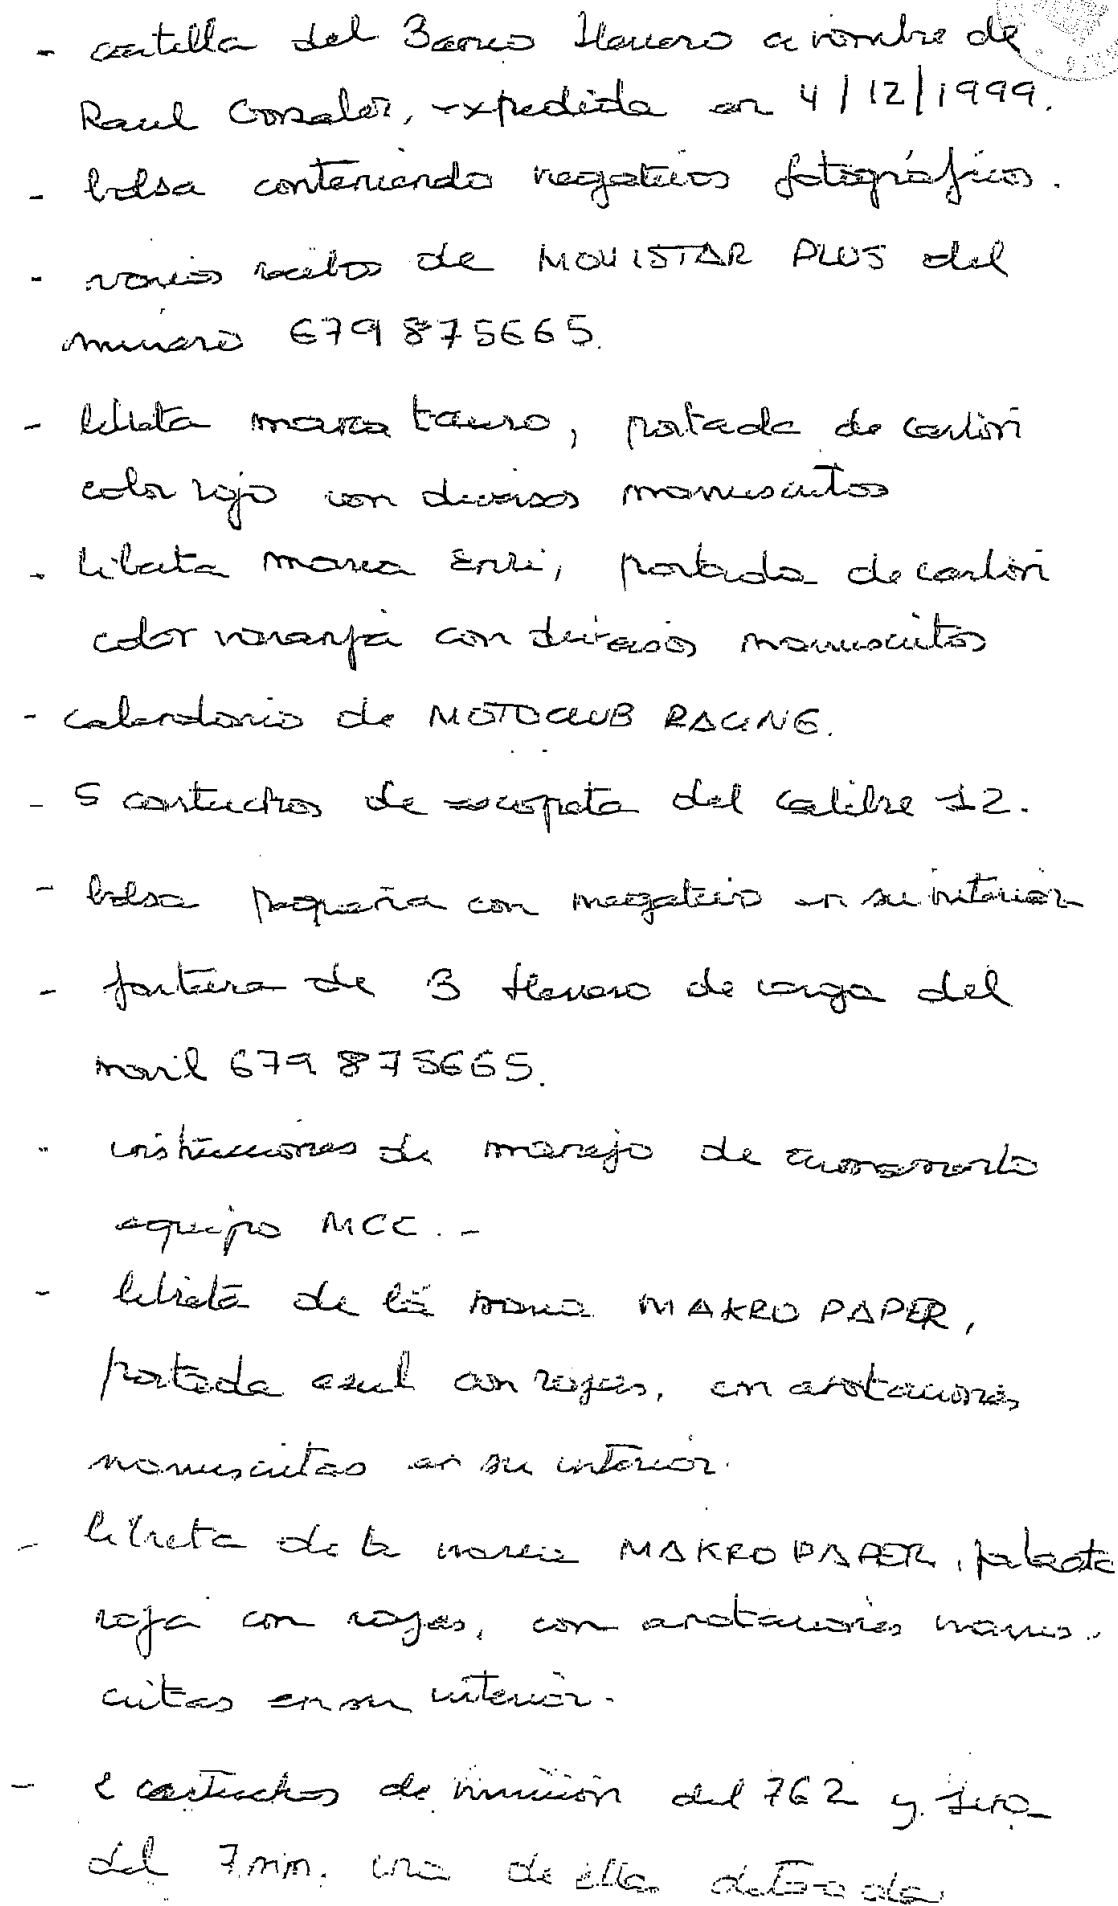 - cartilla del Banco Herrero a nombre de
Raul Gonzalez, expedida en 4/12/1999.
- bolsa conteniendo negativos fotográficos.
- varios recibos de MOVISTAR PLUS del
número 679875665.
- libreta marca tauro, portada de cartón
color rojo con diversos manuscritos
- libreta marca Enri, portada de cartón
color naranja con diversos manuscritos
- calendario de MOTOCLUB RACING.
- 5 cartuchos de escopeta del calibre 12.
- bolsa pequeña con negativo en su interior
- factura de 3 Herrero de carga del
movil 679 875665.
- instrucciones de manejo de armamento
equipo MCC. -
- libreta de la marca MAKRO PAPER,
portada azul con rayas, con anotaciones
manuscritas en su interior.
- libreta de la marca MAKRO PAPER,
roja con rayas, con anotaciones manus-
critas en su interior.
- 2 cartuchos de munición del 762 y
del 7 mm. una de ellas detonada